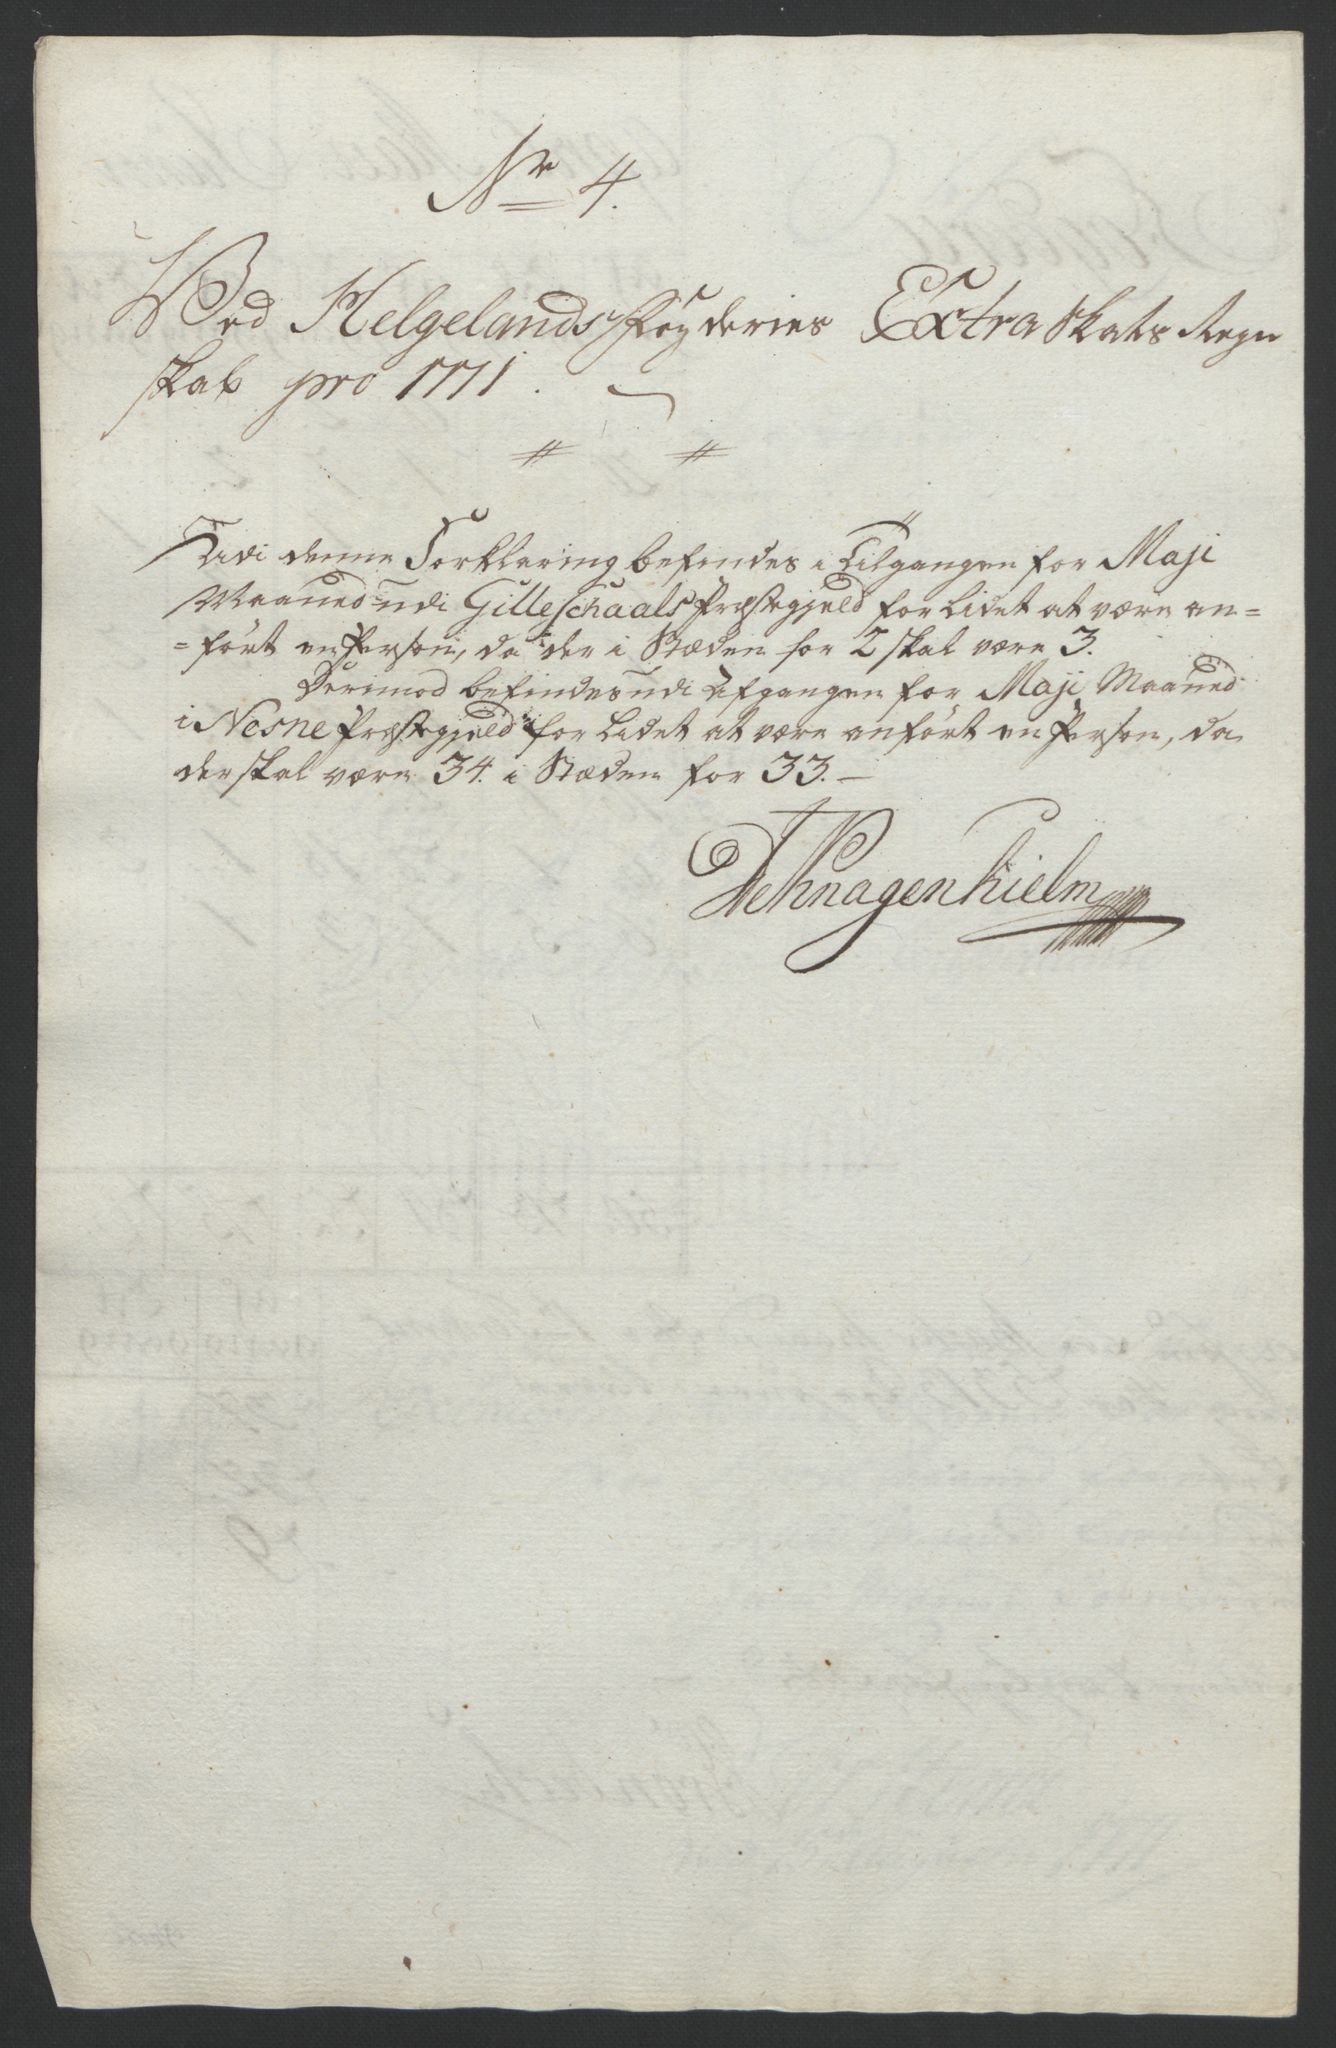 Nr 4.
Ved Helgelands Fögderies Extra Skats Regn
skab pro 1771.
Udi denne Forklaring befindes i Tilgangen for Maji
Maaned udi Gilleschaals Præstegjeld for Lidet at være an=
=fört en Person, da der i Stæden for 2 skal være 3.
Derimod befindes udi Afgangen for Maji Maaned
i Nesne Præstegjeld for Lidet at være anfört en Person, da
der skal være 34. i Stæden for 33.
Knagenhielm